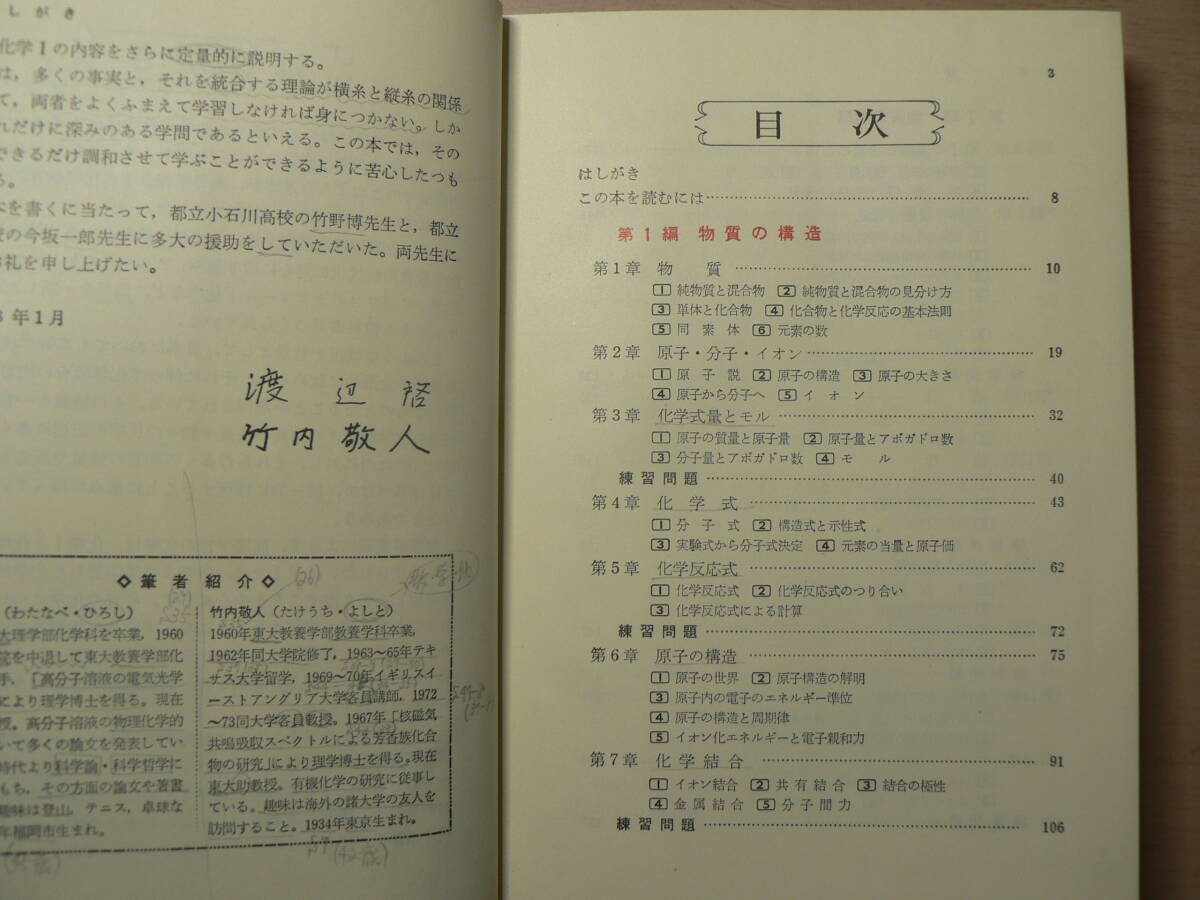 しがき
化学Ⅰの内容をさらに定量的に説明する。
は，多くの事実と，それを統合する理論が横糸と縦糸の関係
て，両者をよくふまえて学習しなければ身につかない。しか
れだけに深みのある学問であるといえる。この本では，その
できるだけ調和させて学ぶことができるように苦心したつも
る。
を書くに当たって，都立小石川高校の竹野博先生と，都立
の今坂一郎先生に多大の援助をしていただいた。両先生に
礼を申し上げたい。
年1月
渡辺 啓
竹内敬人
◇筆者紹介◇
（わたなべ・ひろし）
大理学部化学科を卒業，1960
を中退して東大教養学部化
手，「高分子溶液の電気光学
により理学博士を得る。現在
授。高分子溶液の物理化学的
いて多くの論文を発表してい
時代より科学論・科学哲学に
もち，その方面の論文や著書
趣味は登山，テニス，卓球な
年福岡市生まれ。
竹内敬人（たけうち・よしと）
1960年東大教養学部教養学科卒業，
1962年同大学院修了，1963～65年テキ
サス大学留学，1969～70年イギリスイ
ーストアングリア大学客員講師，1972
～73同大学客員教授。1967年「核磁気
共鳴吸収スペクトルによる芳香族化合
物の研究」により理学博士を得る。現在
東大助教授。有機化学の研究に従事し
ている。趣味は海外の諸大学の友人を
訪問すること。1934年東京生まれ。
3
目 次
はしがき
この本を読むには……8
第1編 物質の構造
第1章 物 質……10
1 純物質と混合物 2 純物質と混合物の見分け方
3 単体と化合物 4 化合物と化学反応の基本法則
5 同素体 6 元素の数
第2章 原子・分子・イオン……19
1 原子説 2 原子の構造 3 原子の大きさ
4 原子から分子へ 5 イオン
第3章 化学式量とモル……32
1 原子の質量と原子量 2 原子量とアボガドロ数
3 分子量とアボガドロ数 4 モ ル
練習問題……40
第4章 化学式……43
1 分子式 2 構造式と示性式
3 実験式から分子式決定 4 元素の当量と原子価
第5章 化学反応式……62
1 化学反応式 2 化学反応式のつり合い
3 化学反応式による計算
練習問題……72
第6章 原子の構造……75
1 原子の世界 2 原子構造の解明
3 原子内の電子のエネルギー準位
4 原子の構造と周期律
5 イオン化エネルギーと電子親和力
第7章 化学結合……91
1 イオン結合 2 共有結合 3 結合の極性
4 金属結合 5 分子間力
練習問題……106